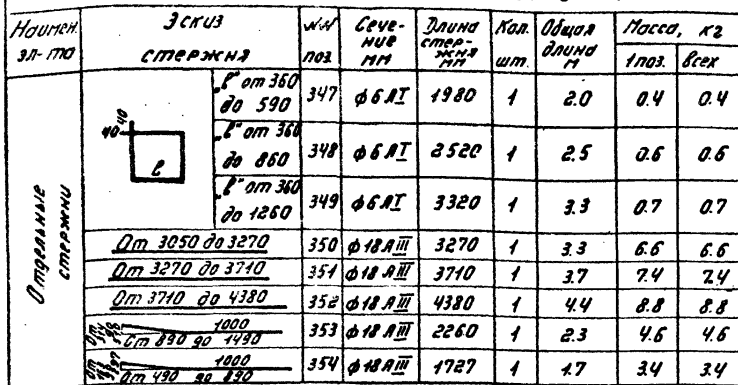 Наимен. эл-та Эскиз стержня №№ поз. Сечение мм Длина стержня мм Кол. шт. Общая длина м Масса, кг
1 поз. всех
Отдельные стержни
40 40 ℓ
"ℓ" от 360 до 590 347 ф6АI 1980 1 2.0 0.4 0.4
"ℓ" от 360 до 860 348 ф6АI 2520 1 2.5 0.6 0.6
"ℓ" от 360 до 1260 349 ф6АI 3320 1 3.3 0.7 0.7
От 3050 до 3270 350 ф18АIII 3270 1 3.3 6.6 6.6
От 3270 до 3710 351 ф18АIII 3710 1 3.7 7.4 7.4
От 3710 до 4380 352 ф18АIII 4380 1 4.4 8.8 8.8
От 1000 353 ф18АIII 2260 1 2.3 4.6 4.6
Ст 890 до 1490
1000 354 ф18АIII 1727 1 1.7 3.4 3.4
От 490 до 890